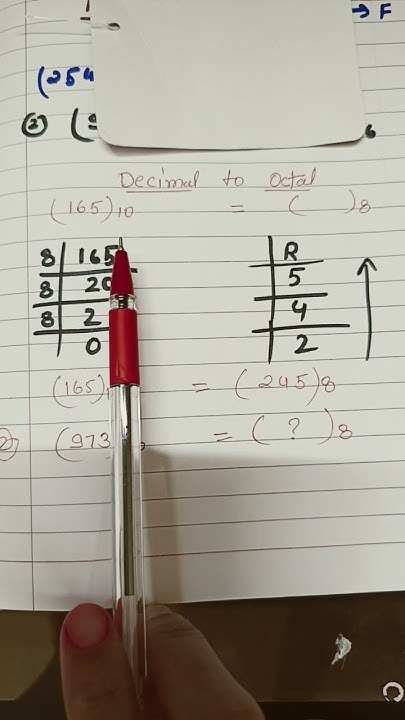 → F
(254
② (
6
Decimal to Octal
(165)10 = ( )8
8 165 R
8 20 5
8 2 4
0 2
(165) = (245)8
② (973 = ( ? )8